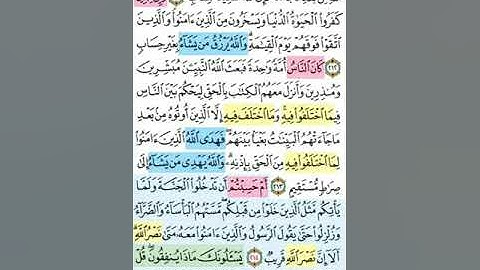 كَفَرُوا۟ ٱلْحَيَوٰةُ ٱلدُّنْيَا وَيَسْخَرُونَ مِنَ ٱلَّذِينَ ءَامَنُوا۟ وَٱلَّذِينَ
ٱتَّقَوْا۟ فَوْقَهُمْ يَوْمَ ٱلْقِيَـٰمَةِ وَٱللَّهُ يَرْزُقُ مَن يَشَآءُ بِغَيْرِ حِسَابٍ
٢١٢ كَانَ ٱلنَّاسُ أُمَّةً وَٰحِدَةً فَبَعَثَ ٱللَّهُ ٱلنَّبِيِّـۧنَ مُبَشِّرِينَ
وَمُنذِرِينَ وَأَنزَلَ مَعَهُمُ ٱلْكِتَـٰبَ بِٱلْحَقِّ لِيَحْكُمَ بَيْنَ ٱلنَّاسِ
فِيمَا ٱخْتَلَفُوا۟ فِيهِ وَمَا ٱخْتَلَفَ فِيهِ إِلَّا ٱلَّذِينَ أُوتُوهُ مِنۢ بَعْدِ
مَا جَآءَتْهُمُ ٱلْبَيِّنَـٰتُ بَغْيًۢا بَيْنَهُمْ فَهَدَى ٱللَّهُ ٱلَّذِينَ ءَامَنُوا۟
لِمَا ٱخْتَلَفُوا۟ فِيهِ مِنَ ٱلْحَقِّ بِإِذْنِهِۦ وَٱللَّهُ يَهْدِى مَن يَشَآءُ إِلَىٰ
صِرَٰطٍ مُّسْتَقِيمٍ ٢١٣ أَمْ حَسِبْتُمْ أَن تَدْخُلُوا۟ ٱلْجَنَّةَ وَلَمَّا
يَأْتِكُم مَّثَلُ ٱلَّذِينَ خَلَوْا۟ مِن قَبْلِكُم مَّسَّتْهُمُ ٱلْبَأْسَآءُ وَٱلضَّرَّآءُ
وَزُلْزِلُوا۟ حَتَّىٰ يَقُولَ ٱلرَّسُولُ وَٱلَّذِينَ ءَامَنُوا۟ مَعَهُۥ مَتَىٰ نَصْرُ ٱللَّهِ
أَلَآ إِنَّ نَصْرَ ٱللَّهِ قَرِيبٌ ٢١٤ يَسْـَٔلُونَكَ مَاذَا يُنفِقُونَ قُلْ